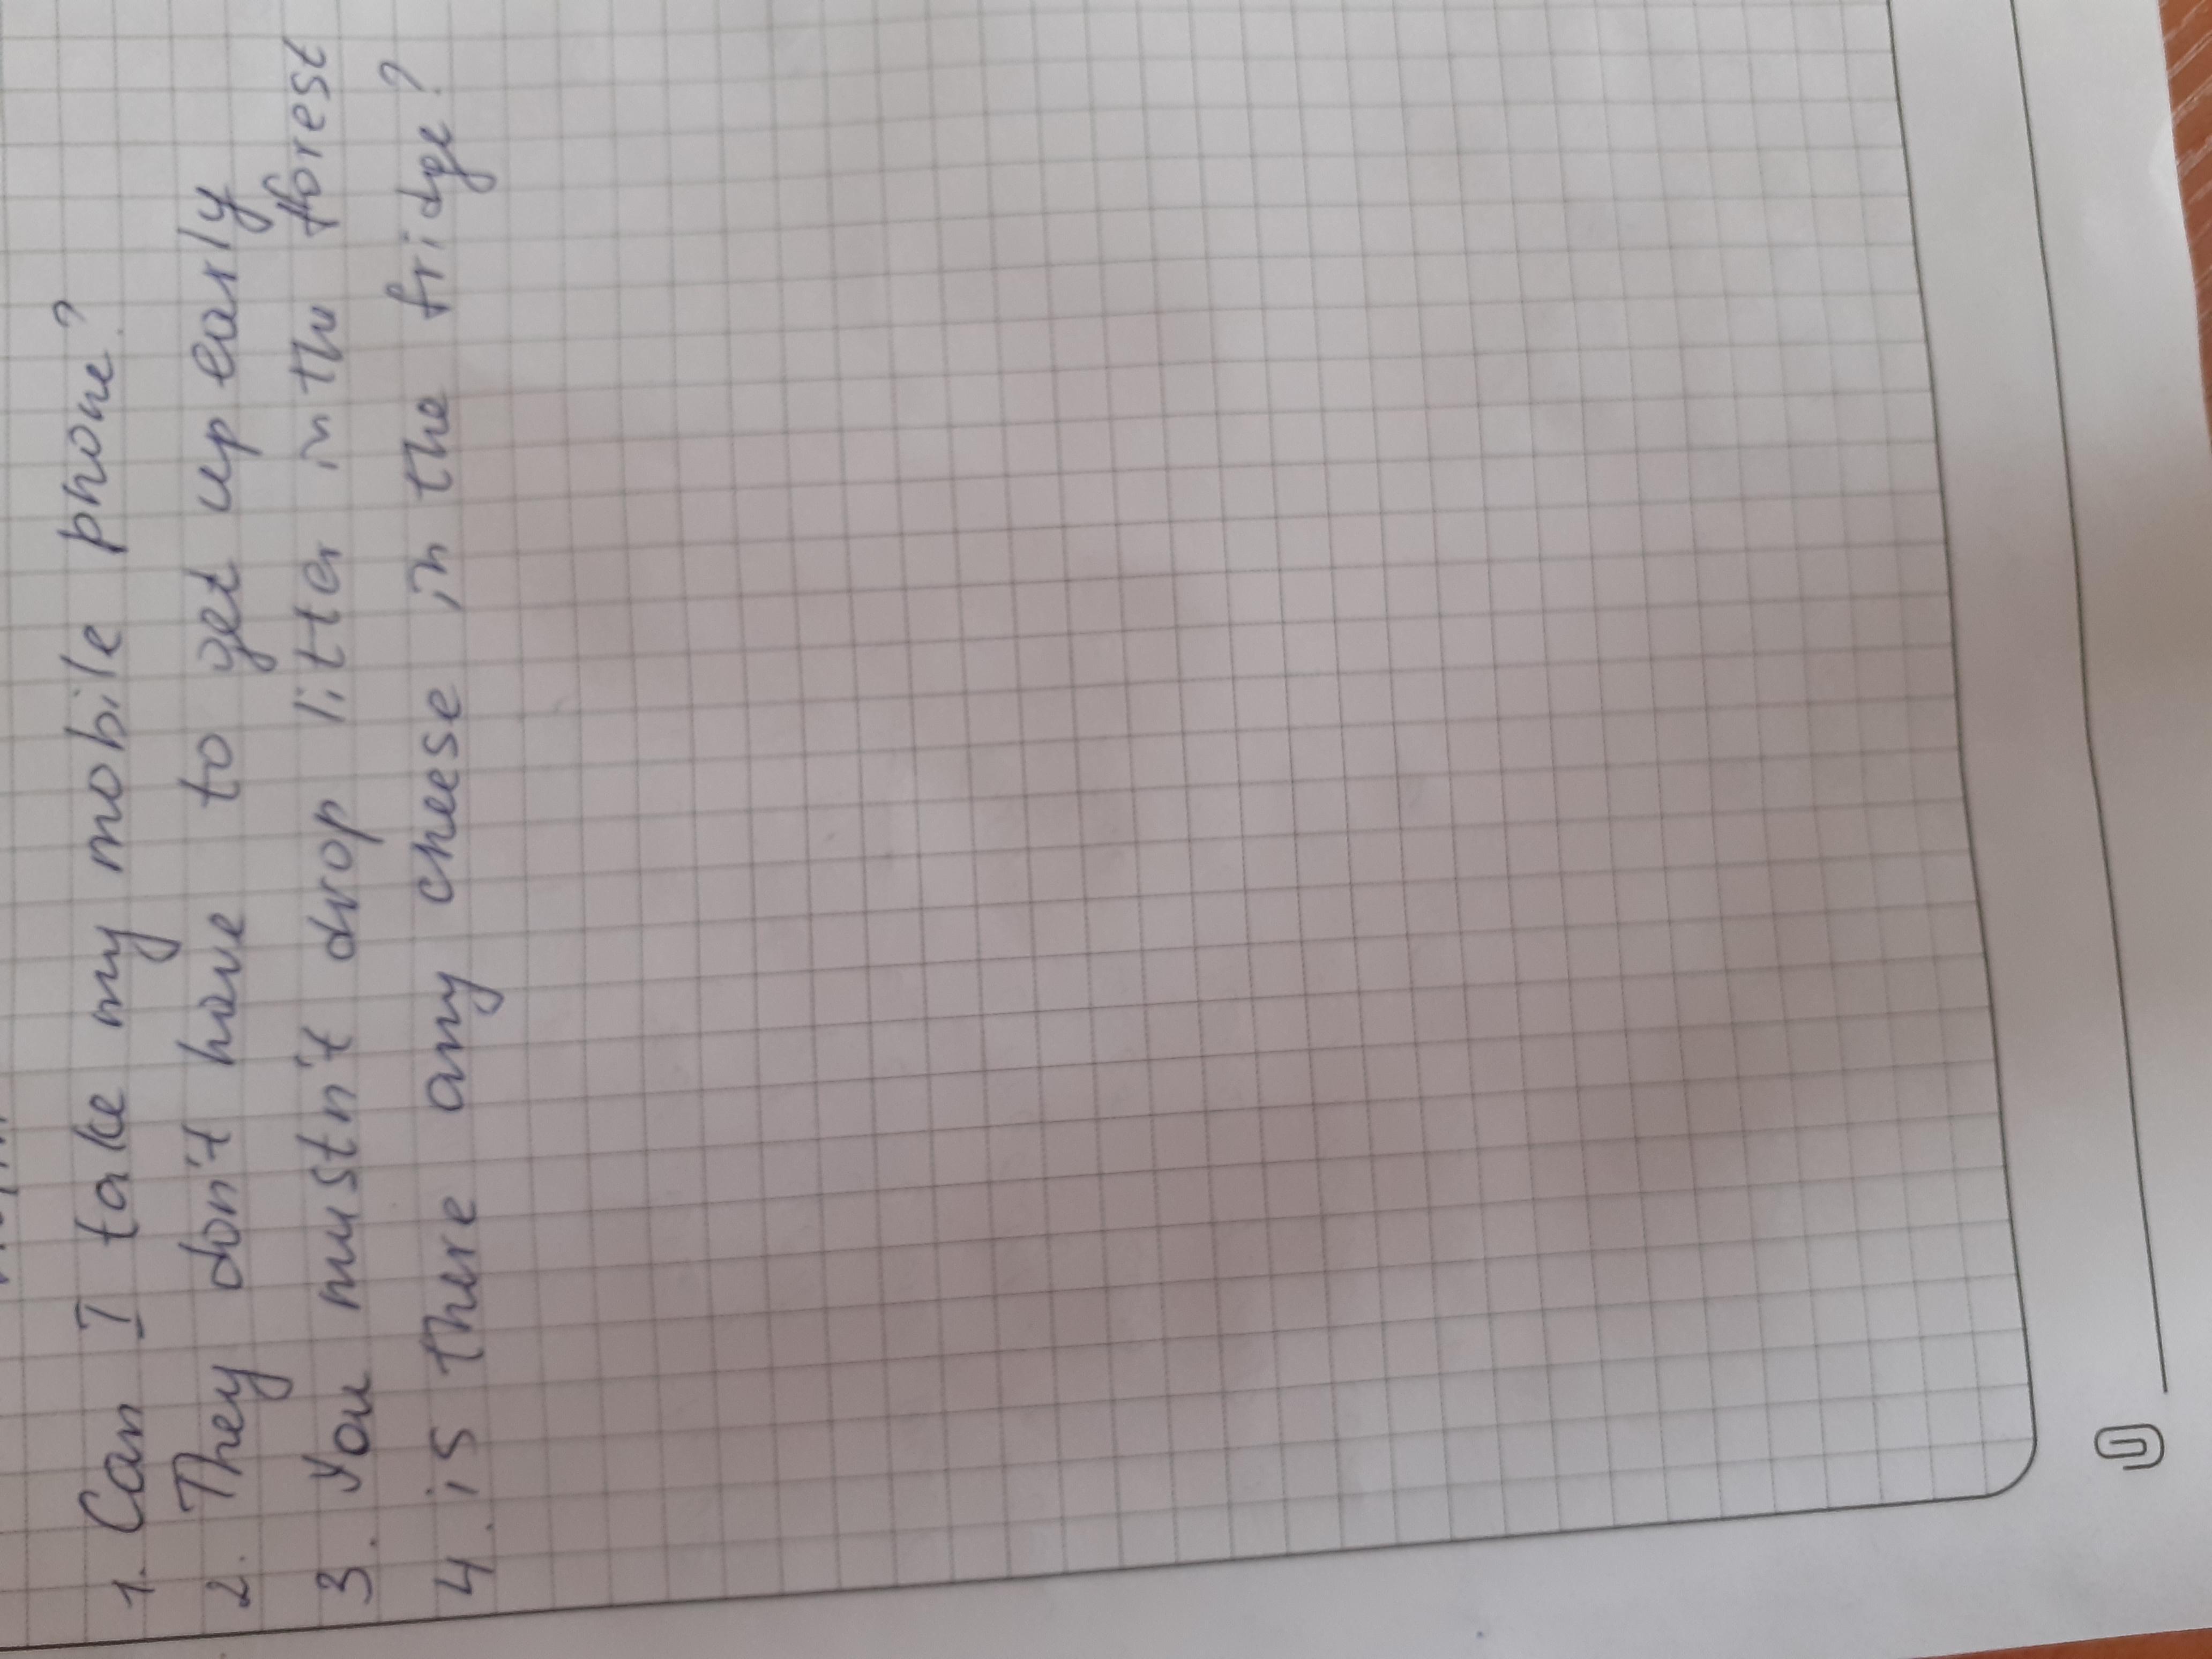 1. Can I take my mobile phone?
2. They don't have to get up early
3. You mustn't drop litter in the forest
4. is there any cheese in the fridge?